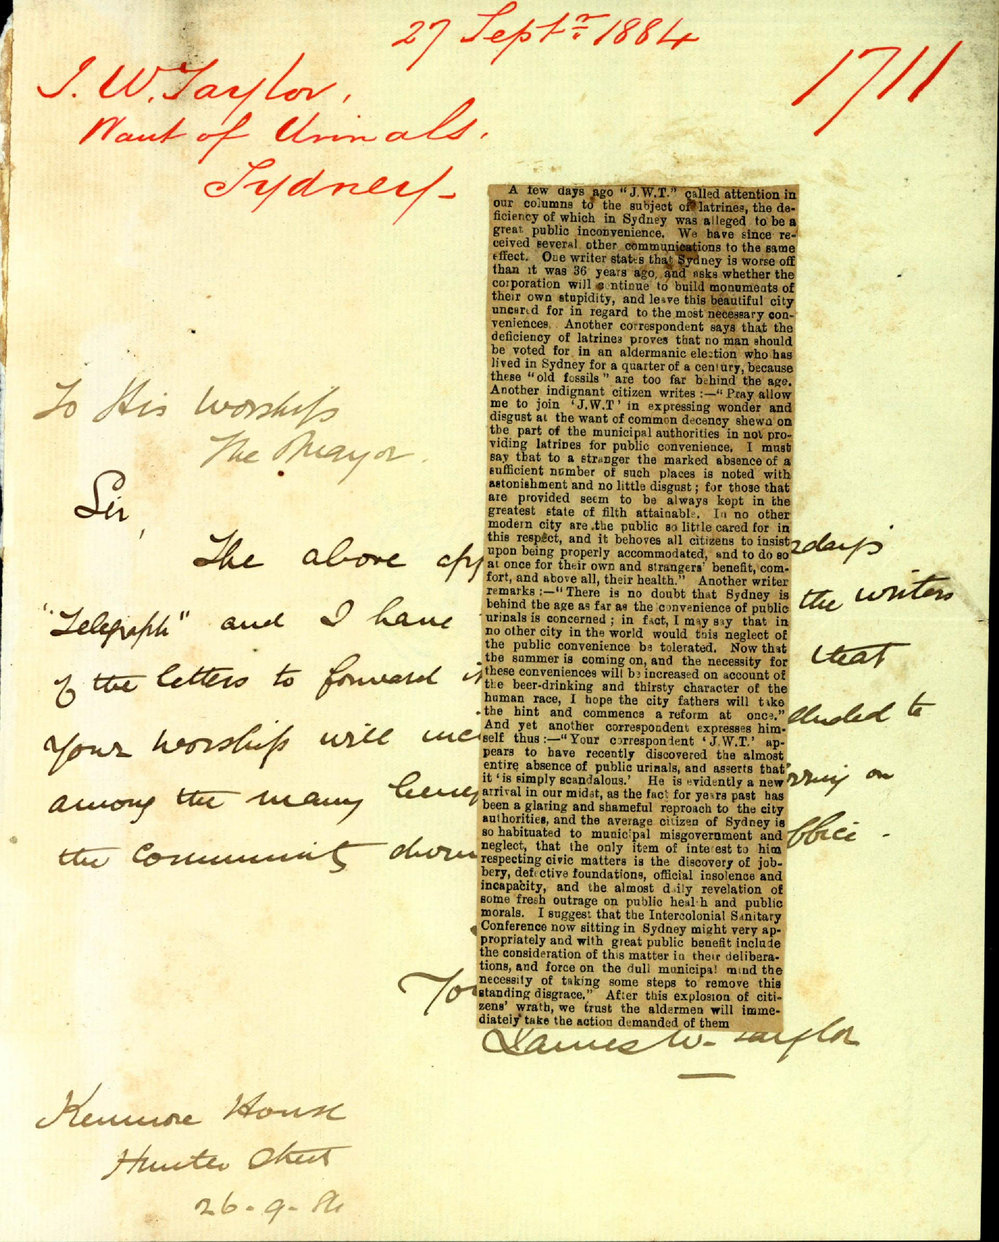 27 Septr 1884
1711
J. W. Taylor,
Want of Urinals.
Sydney
A few days ago "J.W.T." called attention in
our columns to the subject of latrines, the de-
ficiency of which in Sydney was alleged to be a
great public inconvenience. We have since re-
ceived several other communications to the same
effect. One writer states that Sydney is worse off
than it was 36 years ago, and asks whether the
corporation will continue to build monuments of
their own stupidity, and leave this beautiful city
uncared for in regard to the most necessary con-
veniences. Another correspondent says that the
deficiency of latrines proves that no man should
be voted for in an aldermanic election who has
lived in Sydney for a quarter of a century, because
these "old fossils" are too far behind the age.
Another indignant citizen writes :—"Pray allow
me to join 'J.W.T' in expressing wonder and
disgust at the want of common decency shewn on
the part of the municipal authorities in not pro-
viding latrines for public convenience. I must
say that to a stranger the marked absence of a
sufficient number of such places is noted with
astonishment and no little disgust; for those that
are provided seem to be always kept in the
greatest state of filth attainable. In no other
modern city are the public so little cared for in
this respect, and it behoves all citizens to insist
upon being properly accommodated, and to do so
at once for their own and strangers' benefit, com-
fort, and above all, their health." Another writer
remarks :—"There is no doubt that Sydney is
behind the age as far as the convenience of public
urinals is concerned; in fact, I may say that in
no other city in the world would this neglect of
the public convenience be tolerated. Now that
the summer is coming on, and the necessity for
these conveniences will be increased on account of
the beer-drinking and thirsty character of the
human race, I hope the city fathers will take
the hint and commence a reform at once."
And yet another correspondent expresses him-
self thus :—"Your correspondent 'J.W.T.' ap-
pears to have recently discovered the almost
entire absence of public urinals, and asserts that
it 'is simply scandalous.' He is evidently a new
arrival in our midst, as the fact for years past has
been a glaring and shameful reproach to the city
authorities, and the average citizen of Sydney is
so habituated to municipal misgovernment and
neglect, that the only item of interest to him
respecting civic matters is the discovery of job-
bery, defective foundations, official insolence and
incapacity, and the almost daily revelation of
some fresh outrage on public health and public
morals. I suggest that the Intercolonial Sanitary
Conference now sitting in Sydney might very ap-
propriately and with great public benefit include
the consideration of this matter in their delibera-
tions, and force on the dull municipal mind the
necessity of taking some steps to remove this
standing disgrace." After this explosion of citi-
zens' wrath, we trust the aldermen will imme-
diately take the action demanded of them
To His Worship
The Mayor
Sir,
The above
"Telegraph" and I have the writers
of the letters to forward that
your Worship will to
among the many on
the community office.
James W. Taylor
Kenmore House
Hunter Street
26-9-84